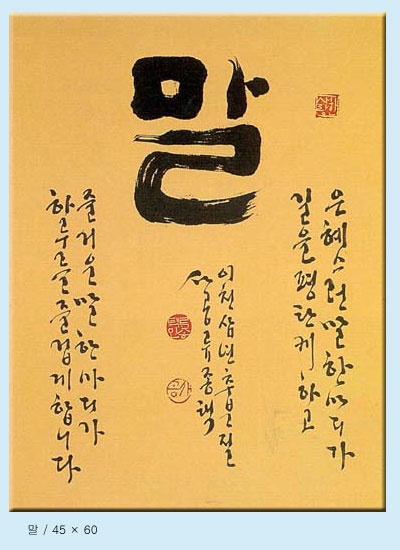 말
은혜스런 말 한마디가
길을 평탄케 하고
즐거운 말 한마디가
하루를 즐겁게 합니다
이천삼년 추분절
류종택
말 / 45 × 60